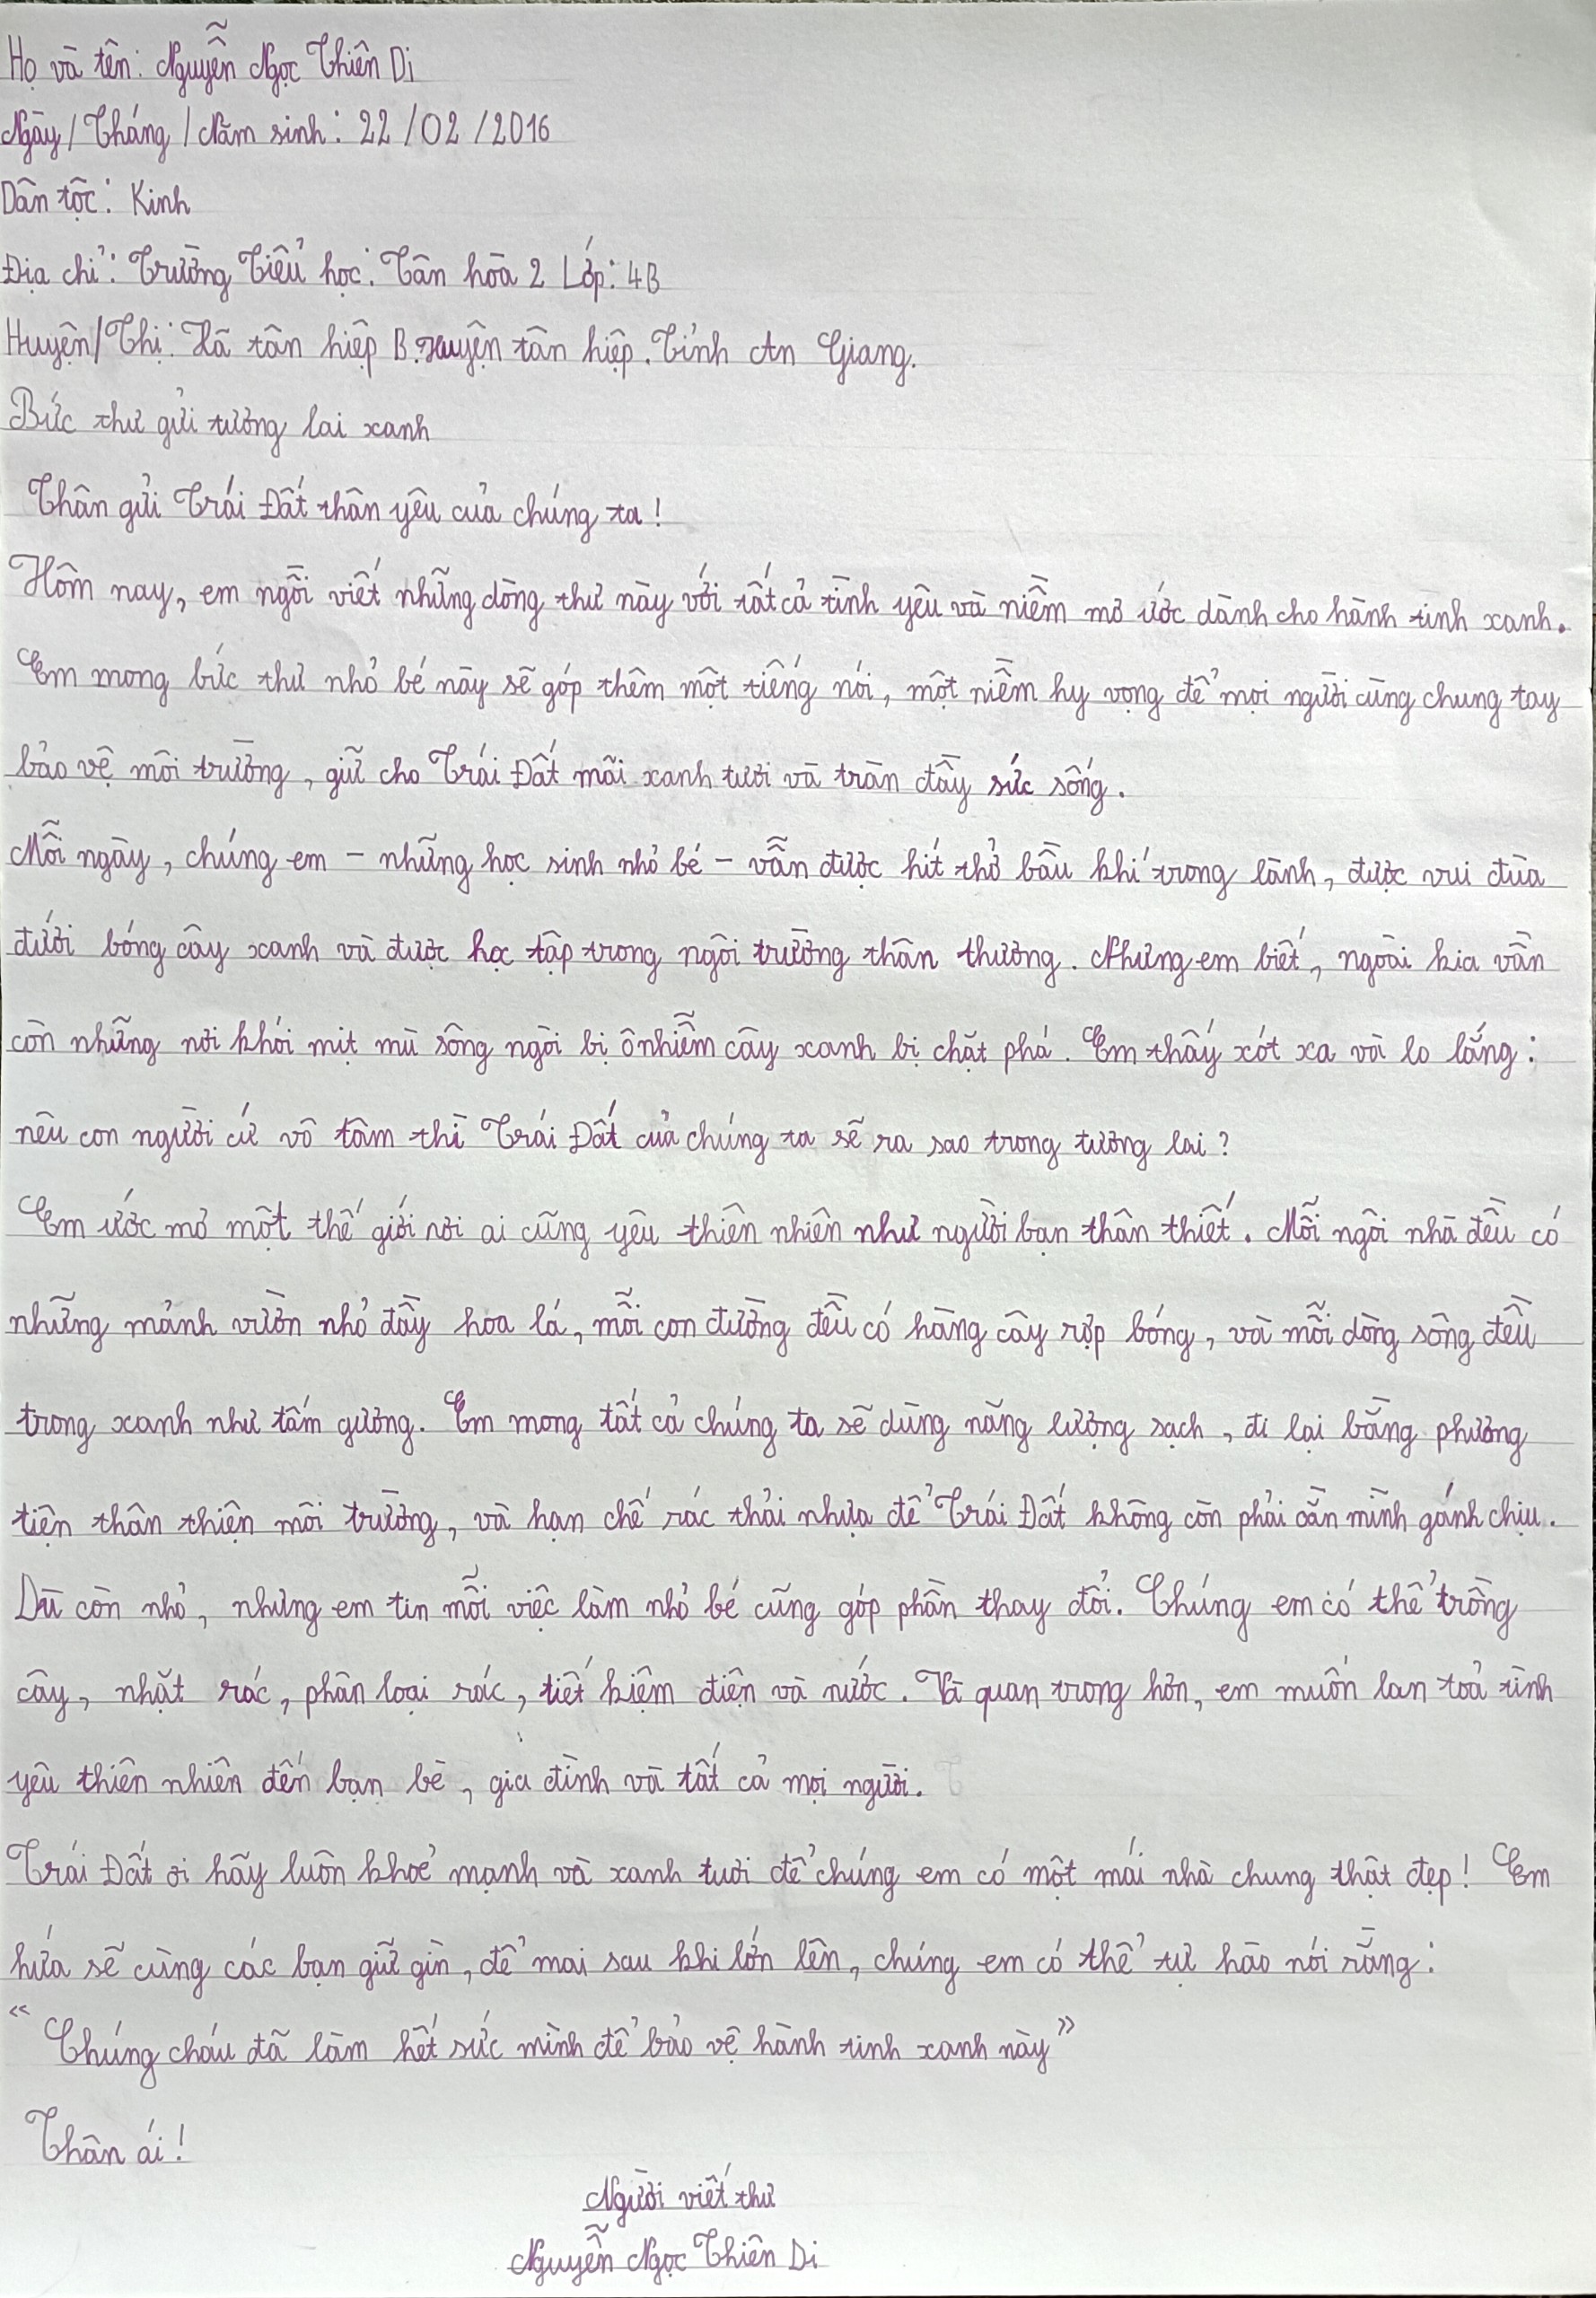 Họ và tên: Nguyễn Ngọc Thiên Di
Ngày/Tháng/Năm sinh: 22/02/2016
Dân tộc: Kinh
Địa chỉ: Trường Tiểu học: Tân hòa 2 Lớp: 4B
Huyện/Thị: Xã tân hiệp B. huyện tân hiệp. Tỉnh An Giang.
Bức thư gửi tương lai xanh
Thân gửi Trái Đất thân yêu của chúng ta!
Hôm nay, em ngồi viết những dòng thư này với tất cả tình yêu và niềm mơ ước dành cho hành tinh xanh.
Em mong bức thư nhỏ bé này sẽ góp thêm một tiếng nói, một niềm hy vọng để mọi người cùng chung tay
bảo vệ môi trường, giữ cho Trái Đất mãi xanh tươi và tràn đầy sức sống.
Mỗi ngày, chúng em – những học sinh nhỏ bé – vẫn được hít thở bầu khí trong lành, được vui đùa
dưới bóng cây xanh và được học tập trong ngôi trường thân thương. Nhưng em biết, ngoài kia vẫn
còn những nơi khói mịt mù sông ngòi bị ô nhiễm cây xanh bị chặt phá. Em thấy xót xa và lo lắng:
nếu con người cứ vô tâm thì Trái Đất của chúng ta sẽ ra sao trong tương lai?
Em ước mơ một thế giới nơi ai cũng yêu thiên nhiên như người bạn thân thiết. Mỗi ngôi nhà đều có
những mảnh vườn nhỏ đầy hoa lá, mỗi con đường đều có hàng cây rợp bóng, và mỗi dòng sông đều
trong xanh như tấm gương. Em mong tất cả chúng ta sẽ dùng năng lượng sạch, đi lại bằng phương
tiện thân thiện môi trường, và hạn chế rác thải nhựa để Trái Đất không còn phải oằn mình gánh chịu.
Dù còn nhỏ, nhưng em tin mỗi việc làm nhỏ bé cũng góp phần thay đổi. Chúng em có thể trồng
cây, nhặt rác, phân loại rác, tiết kiệm điện và nước. Và quan trong hơn, em muốn lan toả tình
yêu thiên nhiên đến bạn bè, gia đình và tất cả mọi người.
Trái Đất ơi hãy luôn khoẻ mạnh và xanh tươi để chúng em có một mái nhà chung thật đẹp! Em
hứa sẽ cùng các bạn giữ gìn, để mai sau khi lớn lên, chúng em có thể tự hào nói rằng:
“Chúng cháu đã làm hết sức mình để bảo vệ hành tinh xanh này”
Thân ái!
Người viết thư
Nguyễn Ngọc Thiên Di